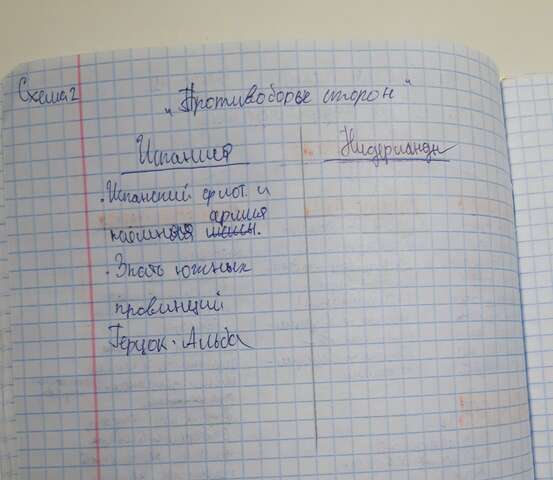 Схема 2
"Противоборье сторон"
Испания
Нидерланды
· Испанский флот. и
армия
наёмная
· Знать южных
провинций
Герцок · Альба